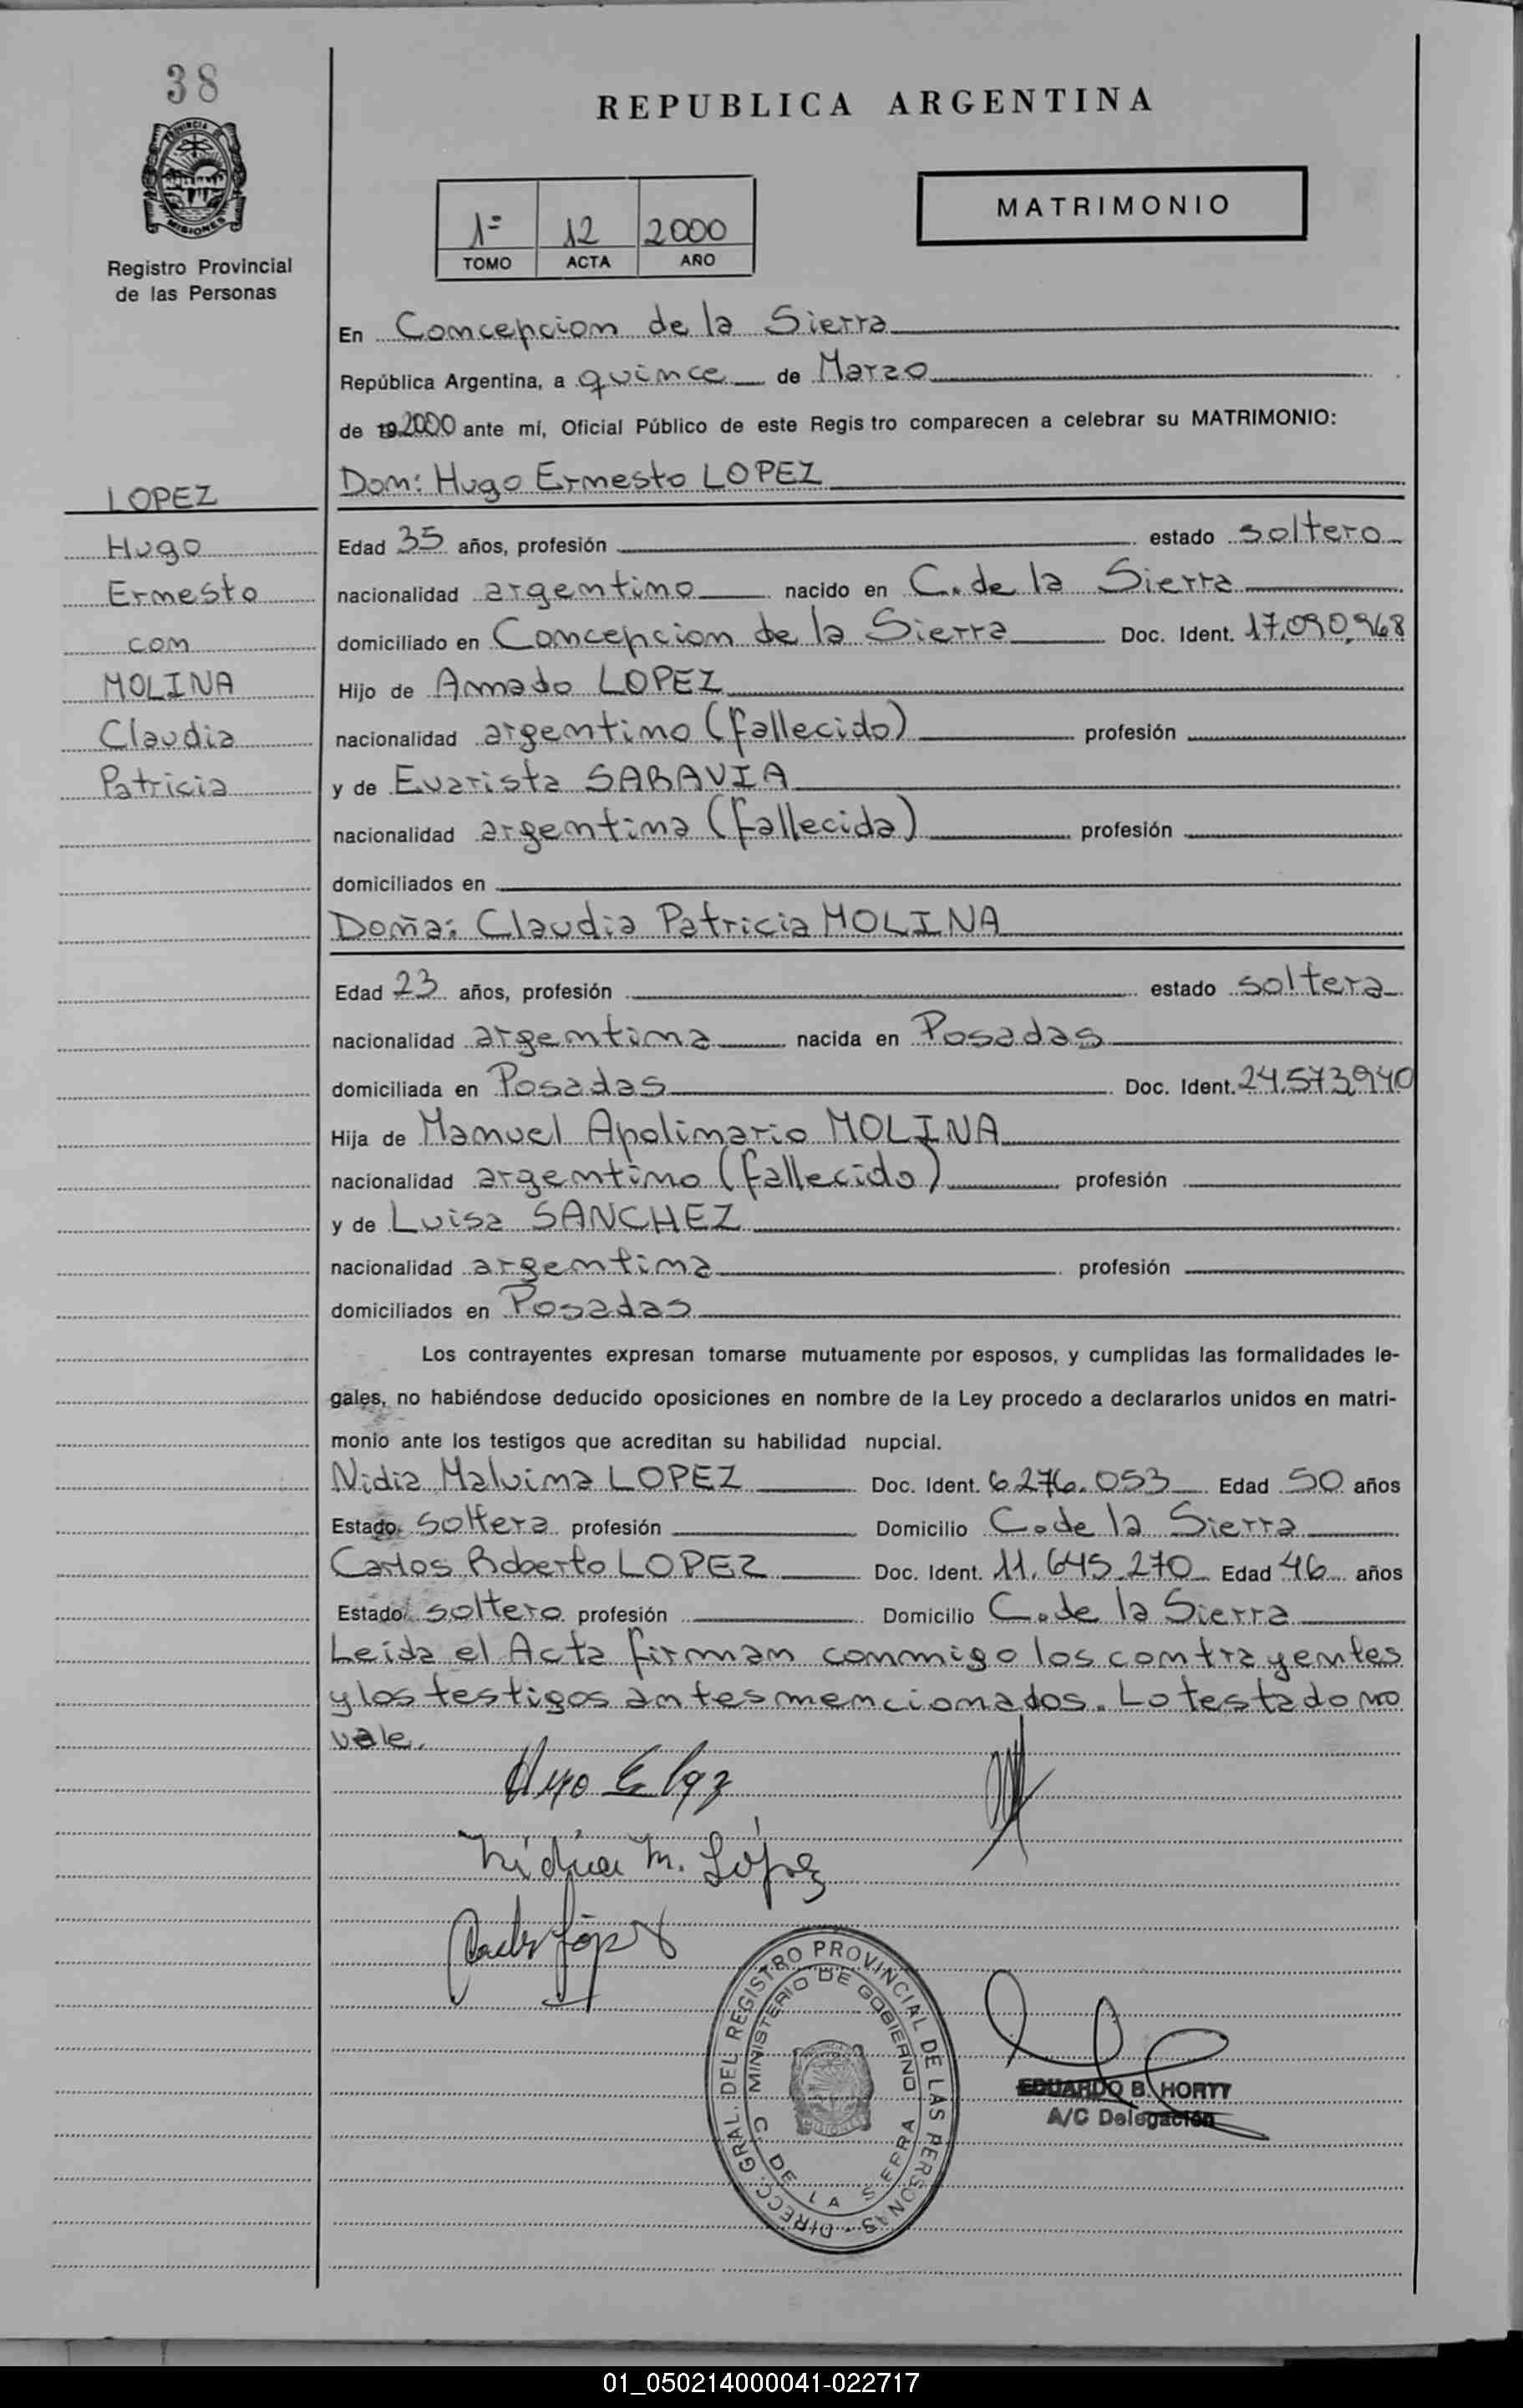 38
PROVINCIA DE
MISIONES
Registro Provincial
de las Personas
REPUBLICA ARGENTINA
1= 12 2000
TOMO ACTA AÑO
MATRIMONIO
En Concepcion de la Sierra
República Argentina, a quince de Marzo
de 192000 ante mí, Oficial Público de este Regis tro comparecen a celebrar su MATRIMONIO:
LOPEZ
Hugo
Ernesto
con
MOLINA
Claudia
Patricia
Don: Hugo Ernesto LOPEZ
Edad 35 años, profesión estado soltero
nacionalidad argentino nacido en C. de la Sierra
domiciliado en Concepcion de la Sierra Doc. Ident. 17.090.968
Hijo de Amado LOPEZ
nacionalidad argentino (fallecido) profesión
y de Evarista SARAVIA
nacionalidad argentina (fallecida) profesión
domiciliados en
Doña: Claudia Patricia MOLINA
Edad 23 años, profesión estado soltera
nacionalidad argentina nacida en Posadas
domiciliada en Posadas Doc. Ident. 24.573.940
Hija de Manuel Apolinario MOLINA
nacionalidad argentino (fallecido) profesión
y de Luisa SANCHEZ
nacionalidad argentina profesión
domiciliados en Posadas
Los contrayentes expresan tomarse mutuamente por esposos, y cumplidas las formalidades le-
gales, no habiéndose deducido oposiciones en nombre de la Ley procedo a declararlos unidos en matri-
monio ante los testigos que acreditan su habilidad nupcial.
Nidia Malvina LOPEZ Doc. Ident. 6.276.053 Edad 50 años
Estado soltera profesión Domicilio C. de la Sierra
Carlos Roberto LOPEZ Doc. Ident. 11.645.270 Edad 46 años
Estado soltero profesión Domicilio C. de la Sierra
Leida el Acta firman conmigo los contrayentes
y los testigos antes mencionados. Lo testado no
vale.
Hugo E Lopez
Nidia M. López
Carlos López
DIRECC. GRAL. DEL REGISTRO PROVINCIAL DE LAS PERSONAS
MINISTERIO DE GOBIERNO
C. DE LA SIERRA
EDUARDO B. HORTT
A/C Delegación
01_050214000041-022717